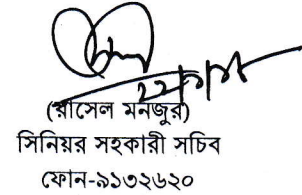 (রাসেল মনজুর)
সিনিয়র সহকারী সচিব
ফোন-৯১৩২৬২০